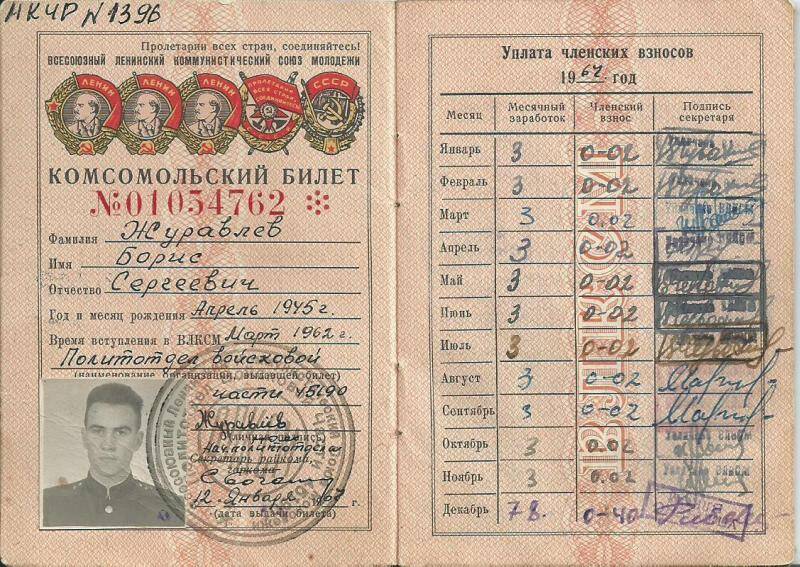 АКЧР №1396
Пролетарии всех стран, соединяйтесь!
ВСЕСОЮЗНЫЙ ЛЕНИНСКИЙ КОММУНИСТИЧЕСКИЙ СОЮЗ МОЛОДЕЖИ
ЛЕНИН ЛЕНИН ЛЕНИН ПРОЛЕТАРИИ ВСЕХ СТРАН СОЕДИНЯЙТЕСЬ СССР
КОМСОМОЛЬСКИЙ БИЛЕТ
№01034762
Фамилия Журавлев
Имя Борис
Отчество Сергеевич
Год и месяц рождения Апрель 1945 г.
Время вступления в ВЛКСМ Март 1962 г.
Политотдел войсковой
(наименование организации, выдавшей билет)
части 45190
Журавлёв
(личная подпись)
Нач. политотдела
Секретарь райкома,
горкома
12 Января 1967 г.
(дата выдачи билета)
Уплата членских взносов
1967 год
Месяц Месячный заработок Членский взнос Подпись секретаря
Январь 3 0-02
Февраль 3 0-02
Март 3 0.02
Апрель 3 0-02
Май 3 0-02
Июнь 3 0-02
Июль 3 0-02
Август 3 0-02
Сентябрь 3 0-02
Октябрь 3 0.02
Ноябрь 3 0.02
Декабрь 78. 0-40